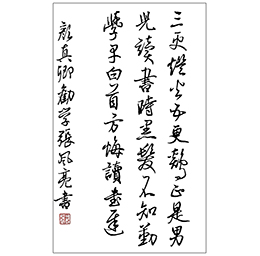 三更燈火五更鷄正是男
兒讀書時黑髮不知勤
學早白首方悔讀書遲
顏真卿勸学張風亮書